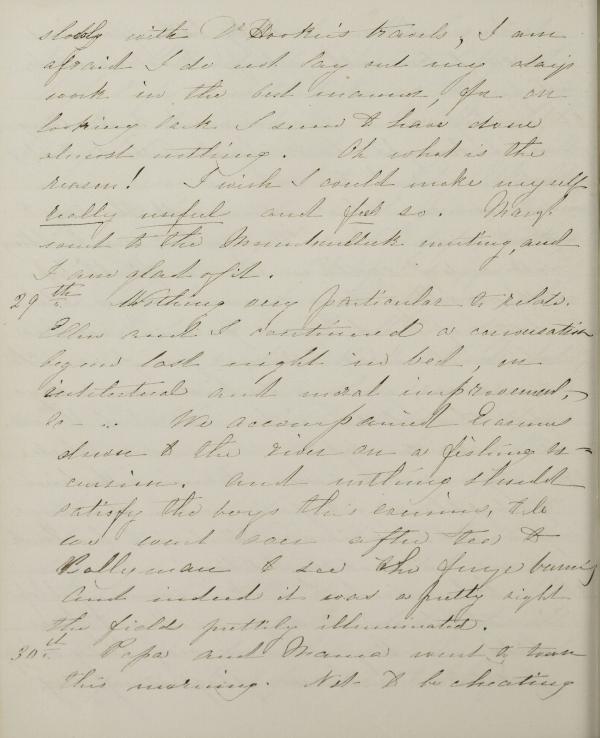 slowly with Dr Hooker's travels, I am
afraid I do not lay out my days
work in the best manner, for on
looking back I seem to have done
almost nothing. Oh what is the
reason! I wish I could make myself
really useful and feel so. Mary
went to the meeting, and
I am glad of it.
29th Nothing very particular to relate.
Ellen and I continued a conversation
begun last night in bed, on
intellectual and moral improvement,
&c - ... We accompanied Erasmus
down to the river on a fishing ex=
cursion. And nothing should
satisfy the boys this evening, till
we went soon after tea to
to see the furze burning
And indeed it was a pretty sight
the fields prettily illuminated.
30th Papa and Mama went to town
this morning. Not to be cheating